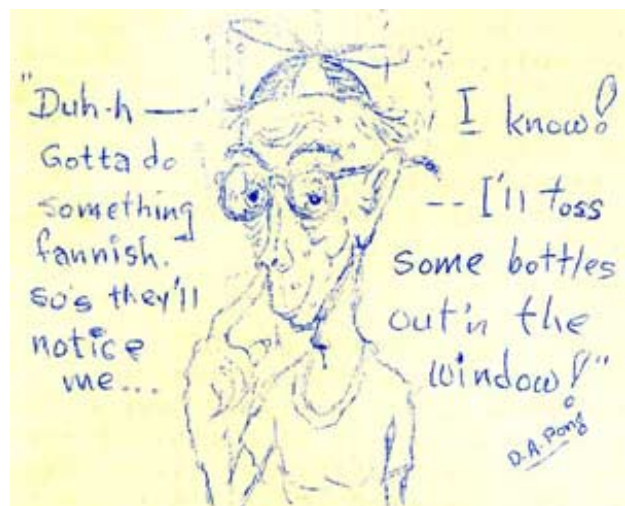 "Duh-h —
Gotta do
something
fannish.
so's they'll
notice
me...
I know!
-- I'll toss
some bottles
out'n the
window!"
D.A. Pong